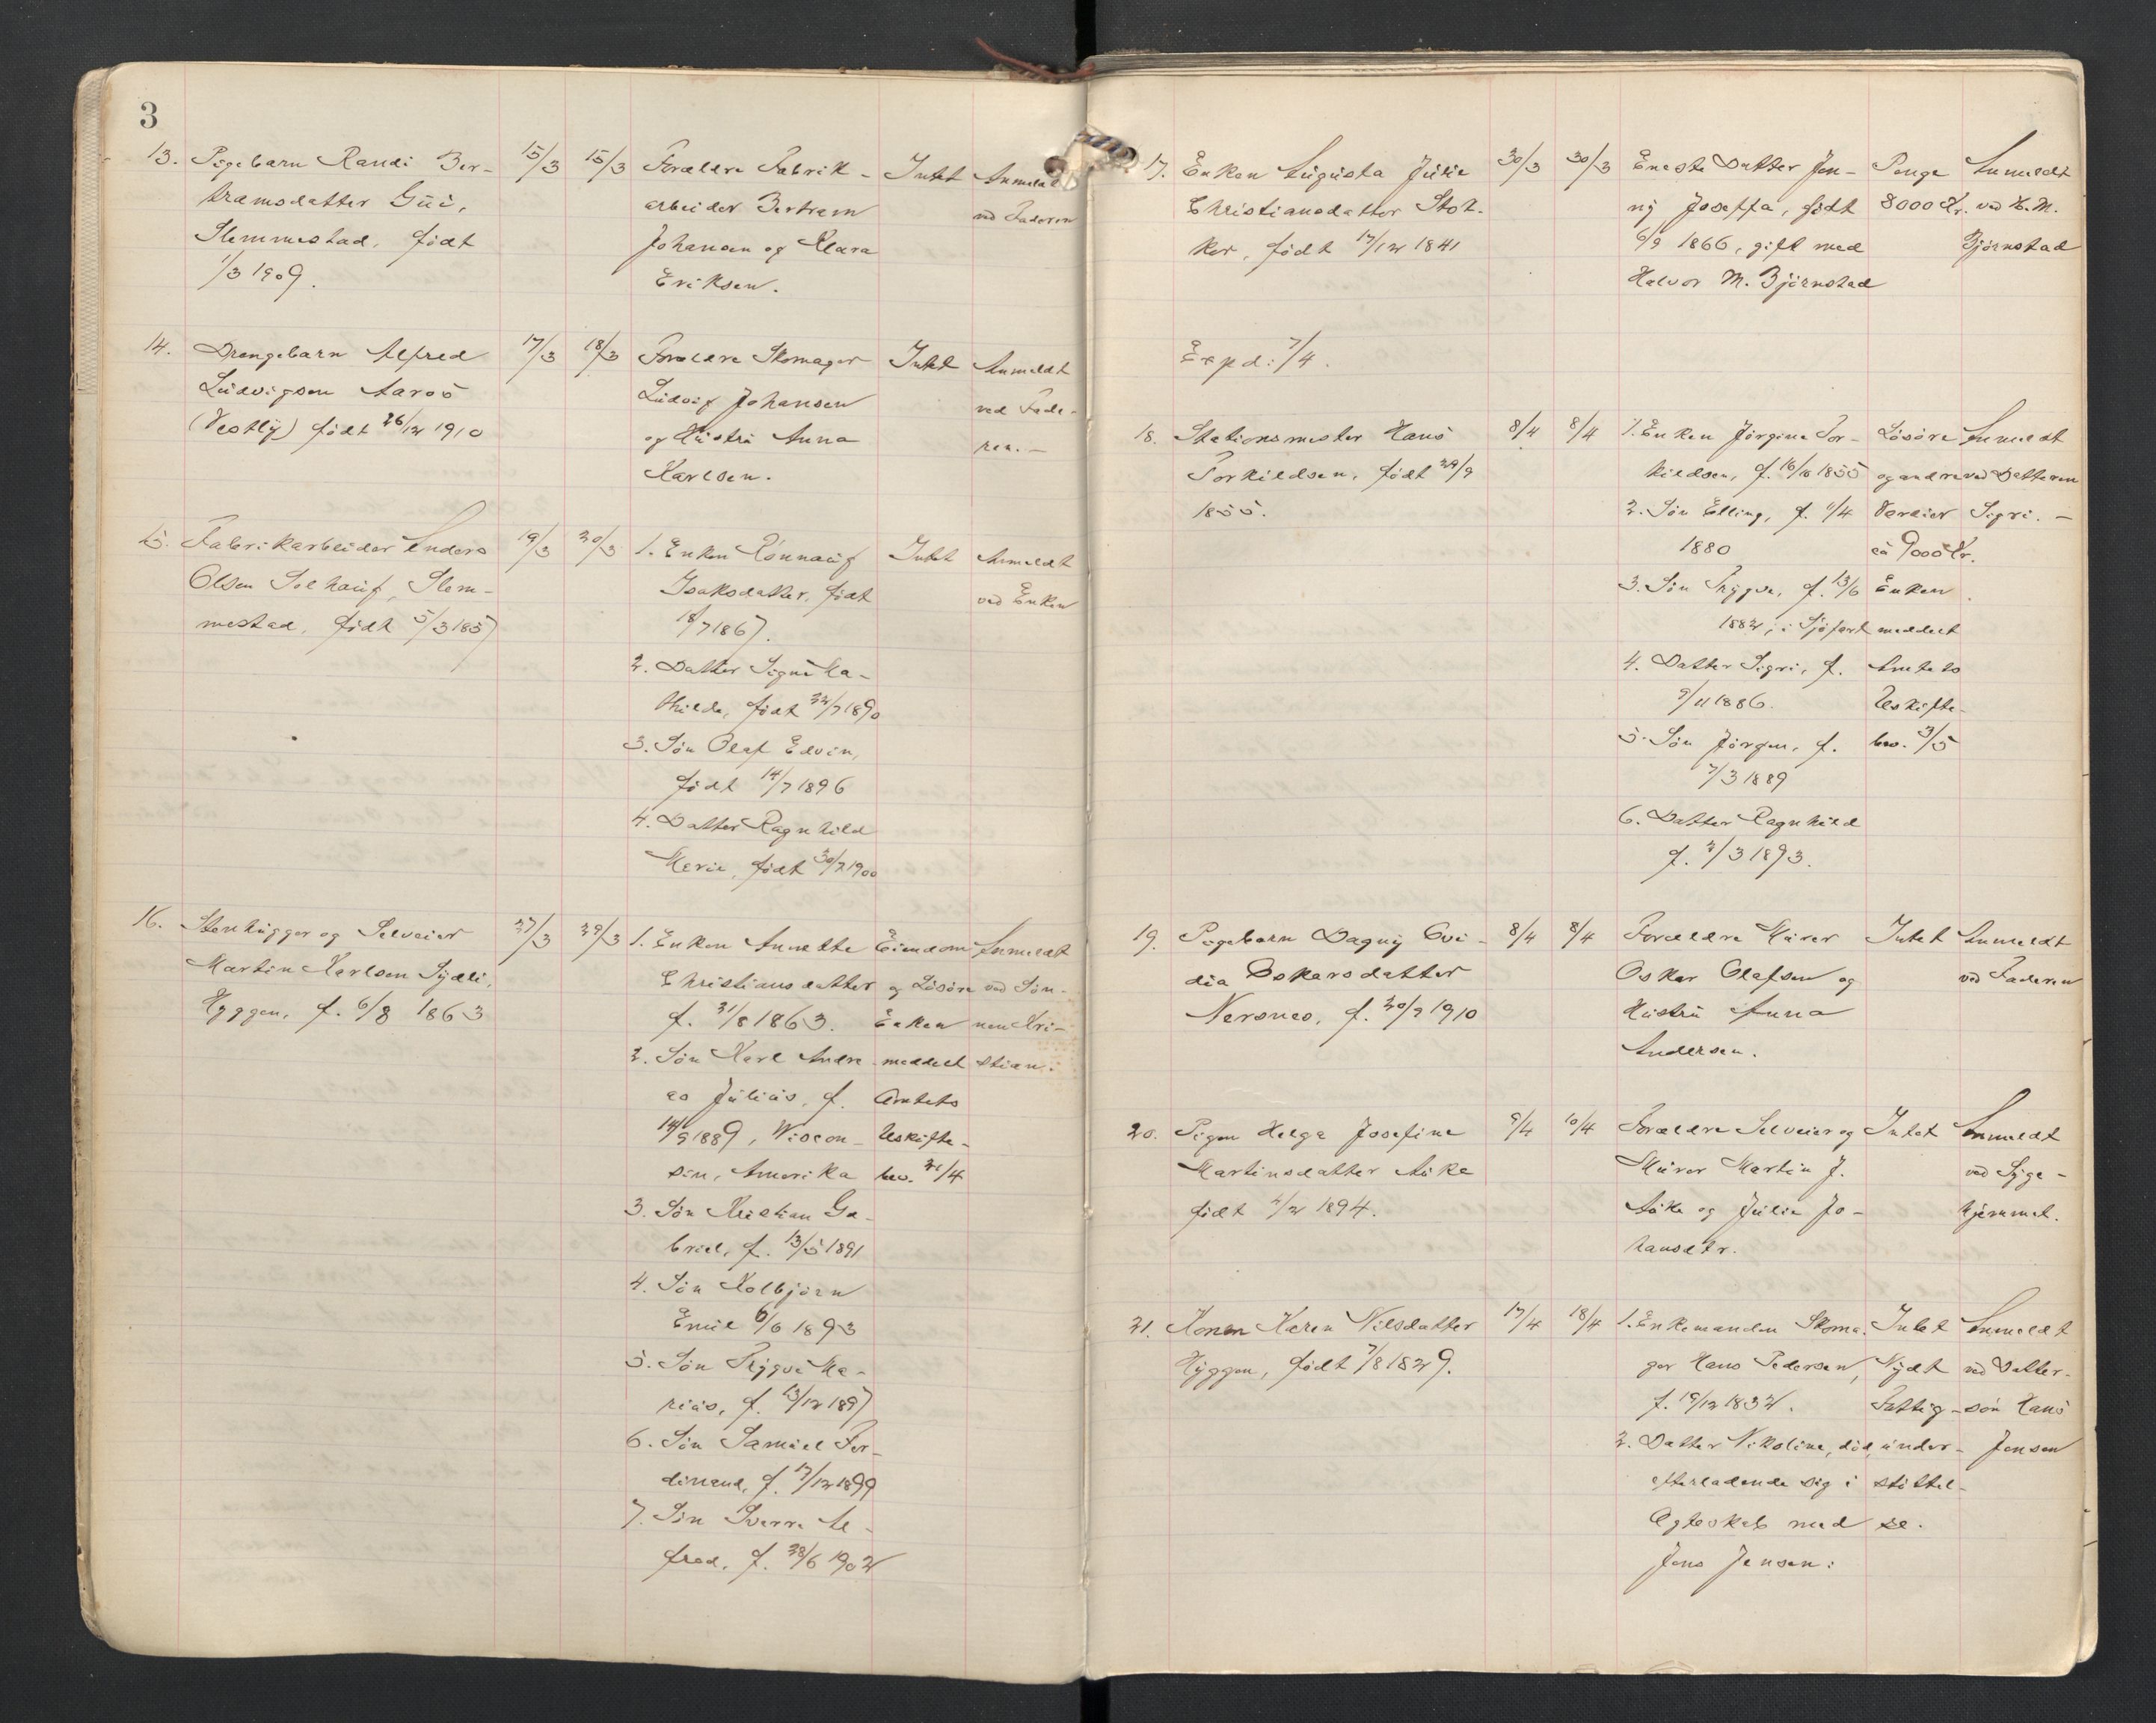 3
13. Pigebarn Randi Ber-
tramsdatter Gui,
Slemmestad, født
1/3 1909.
15/3
15/3
Forældre Fabrik-
arbeider Bertram
Johansen og Klara
Eriksen.
Intet
Anmeldt
ved Faderen
14. Drengebarn Alfred
Ludvigsen Aaros
(Vestby) født 26/12 1910
17/3
18/3
Forældre Skomager
Ludvig Johansen
og Hustru Anna
Karlsen.
Intet
Anmeldt
ved Fade-
ren.-
15. Fabrikarbeider Anders
Olsen Solhaug, Slem-
mestad, født 5/3 1857
19/3
20/3
1. Enken Rønnaug
Isaksdatter, født
18/7 1867.
2. Datter Signe Ma-
thilde, født 22/7 1890
3. Søn Olaf Edvin,
født 14/7 1896
4. Datter Ragnhild
Marie, født 30/7 1900
Intet
Anmeldt
ved Enken
16. Stenhugger og Selveier
Martin Karlsen Sydli,
Hyggen, f. 6/8 1863
27/3
29/3
1. Enken Annette
Christiansdatter
f. 31/8 1863.
2. Søn Karl Andre-
as Julius, f.
14/9 1889, Wiscon-
sin, Amerika
3. Søn Kristian Ga-
briel, f. 13/5 1891
4. Søn Kolbjørn
Emil 6/6 1893
5. Søn Trygve Ma-
rius, f. 13/12 1897
6. Søn Samuel Fer-
dinand, f. 17/12 1899
7. Søn Sverre Al-
fred, f. 28/6 1902
Eiendom
og Løsøre
Enken
meddelt
Amtets
Uskifte-
bev. 21/4
Anmeldt
ved Søn-
nen Kri-
stian.
17. Enken Augusta Julie
Christiansdatter Stok-
ker, født 17/12 1841
30/3
30/3
Eneste Datter Jen-
ny Joseffa, født
6/9 1866, gift med
Halvor M. Bjørnstad
Penge
8000 Kr.
Anmeldt
ved H. M.
Bjørnstad
Expd: 7/4.
18. Stationsmester Hans
Torkildsen, født 29/9
1855.
8/4
8/4
1. Enken Jørgine Tor-
kildsen, f. 16/10 1855
2. Søn Elling, f. 11/4
1880
3. Søn Trygve, f. 13/6
1882, i Sjøfart
4. Datter Sigri, f.
9/11 1886.
5. Søn Jørgen, f.
7/3 1889
6. Datter Ragnhild
f. 2/3 1893.
Løsøre
og andre
Værdier
ca 9000 Kr.
Enken
meddelt
Amtets
Uskifte-
bev. 3/5
Anmeldt
ved Datteren
Sigri. -
19. Pigebarn Dagny Ovi-
dia Oskarsdatter
Nersnes, f. 20/9 1910
8/4
8/4
Forældre Murer
Oskar Olafsen og
Hustru Anna
Andersen.
Intet
Anmeldt
ved Faderen
20. Pigen Helga Josefine
Martinsdatter Aake
født 2/2 1894.
9/4
10/4
Forældre Selveier og
Murer Martin J.
Aake og Julie Jo-
hansdtr.
Intet
Anmeldt
ved Syge-
hjemmet.
21. Konen Karen Nilsdatter
Hyggen, født 7/8 1829.
17/4
18/4
1. Enkemanden Skoma-
ger Hans Pedersen,
f. 19/12 1832.
2. Datter Nikoline, död,
efterladende sig i
Ægteskab med
Jens Jensen:
Intet
Nydt
Fattig-
under-
støttel-
se.
Anmeldt
ved Datter-
søn Hans
Jensen